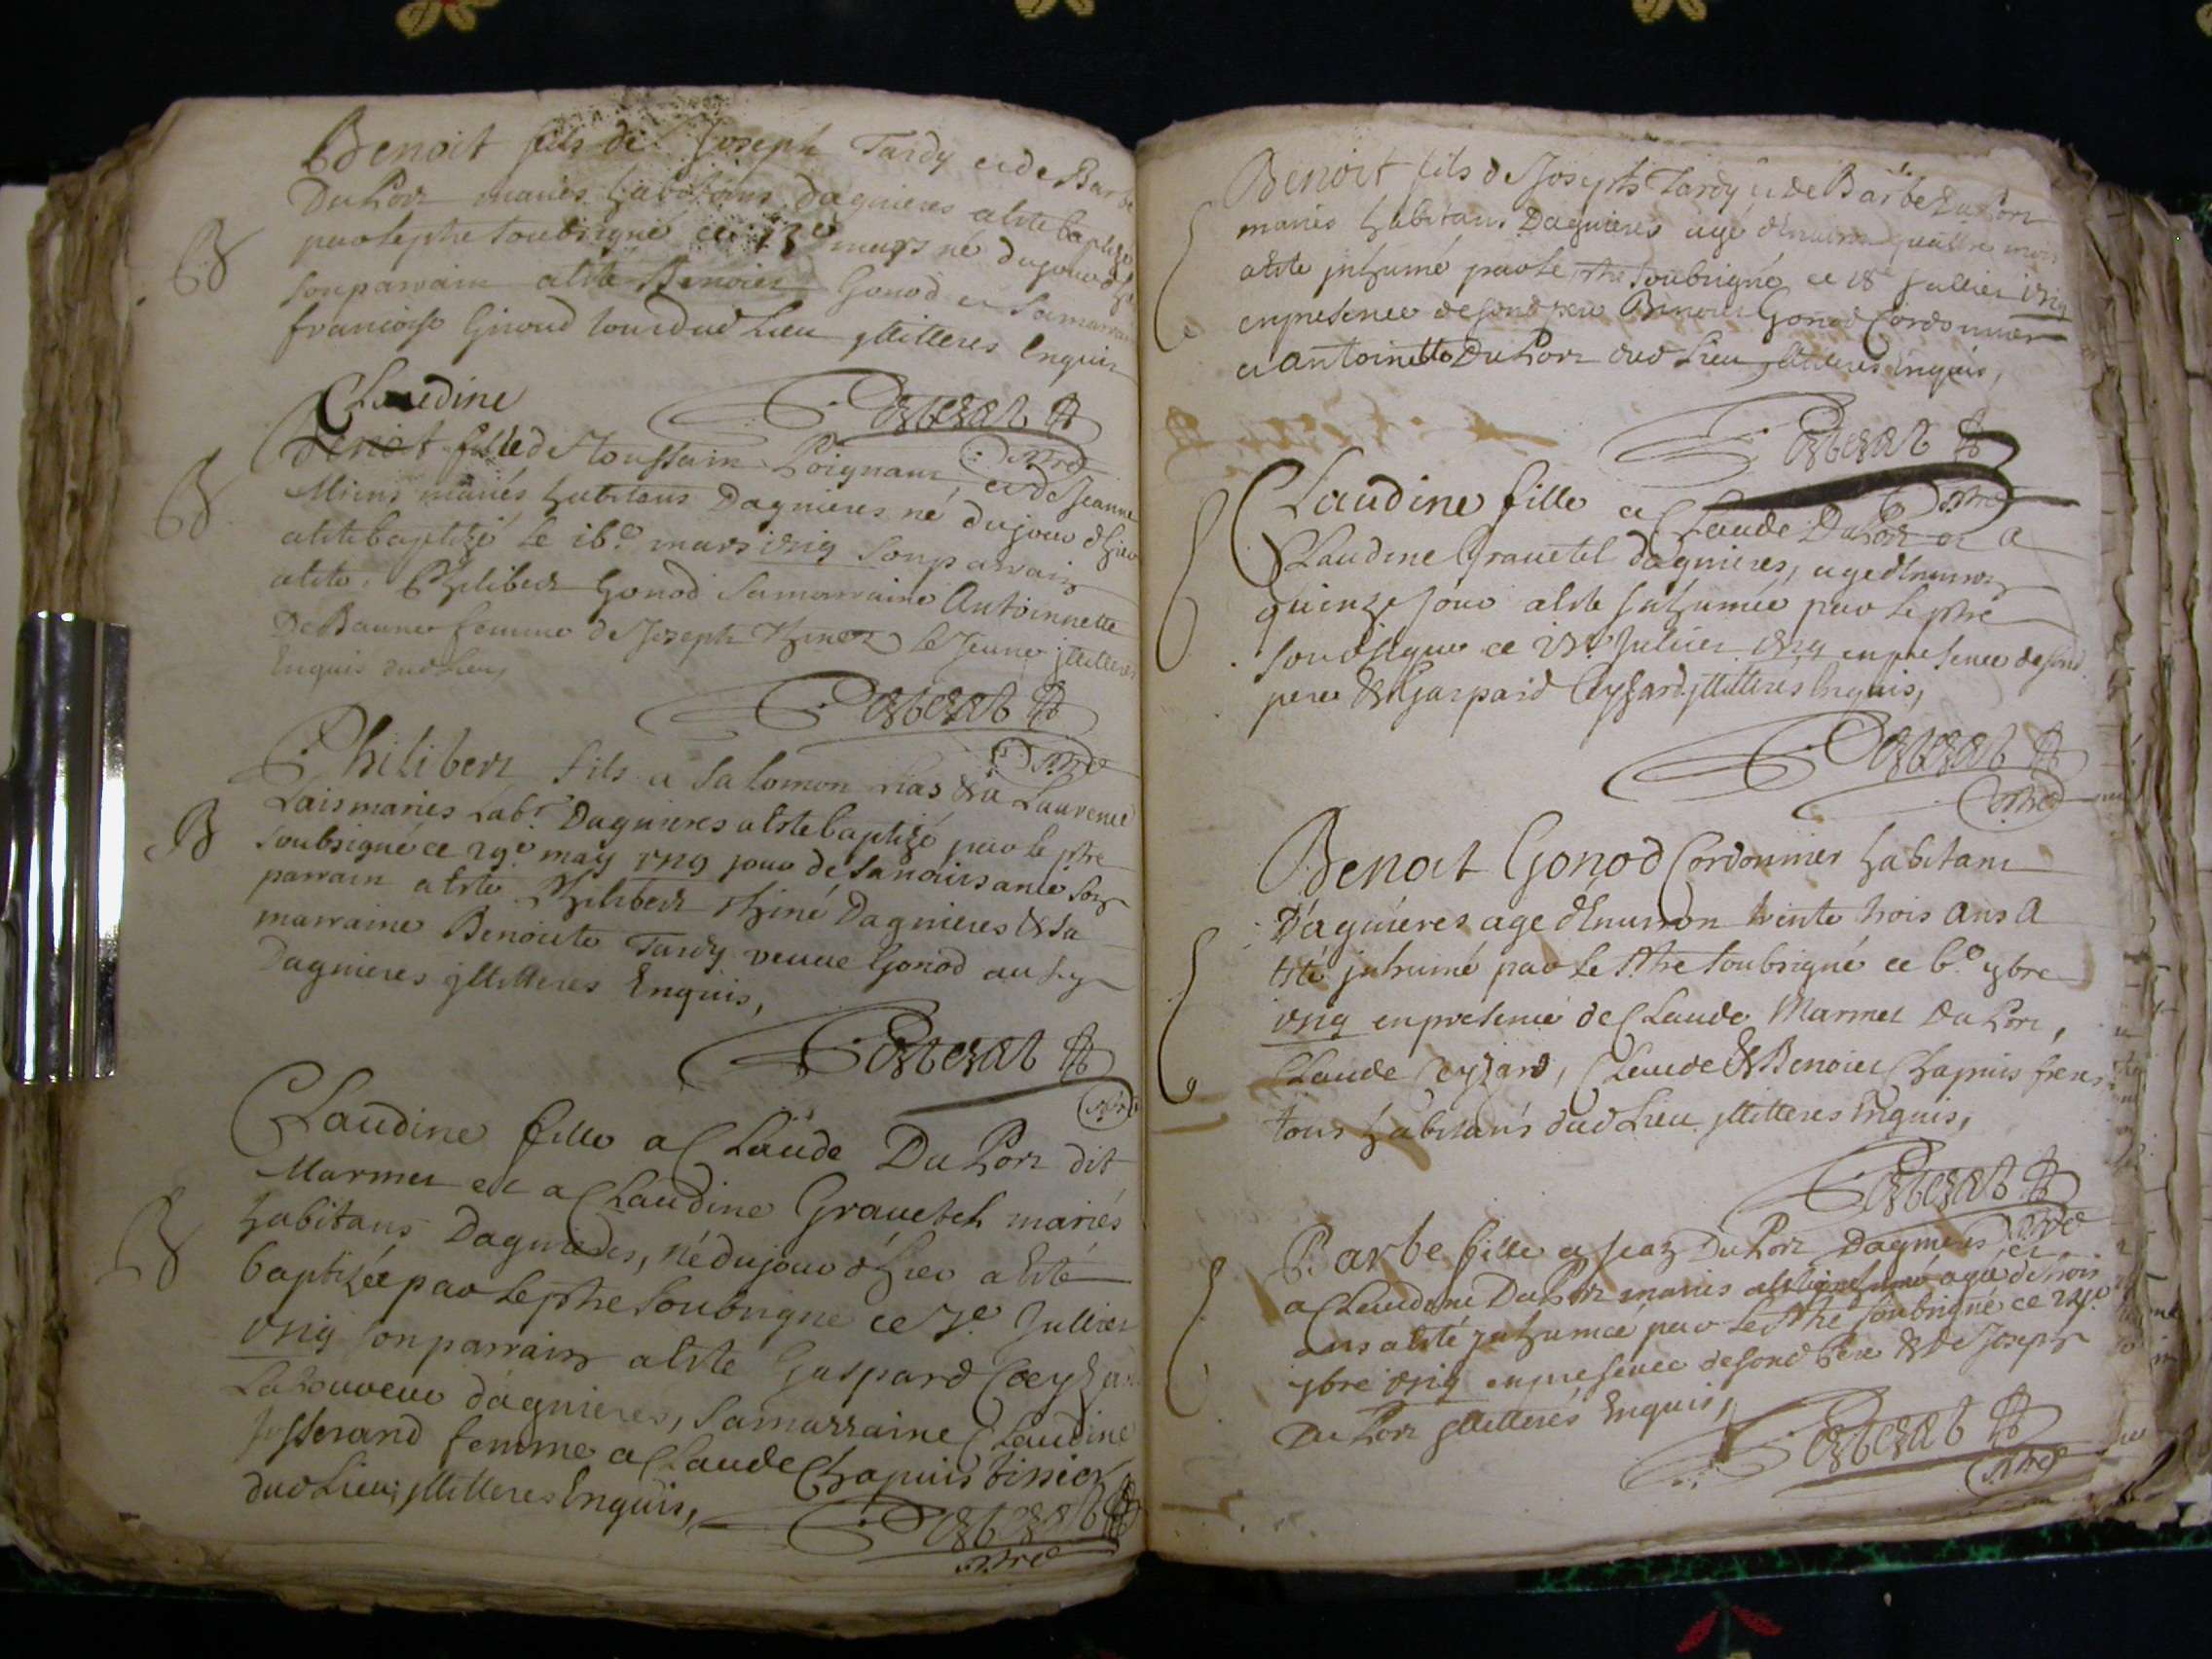 Benoit fils de Joseph Tardy et de Barbe
DuPorz mariés habitans dagnieres a été baptizé
par le ptre soubsigné ce mars né du jour d
son parrain a été Benoict Gonod et sa marraine
francoise Giroud tous dud lieu jllitteres Enquis
B
Claudine
Benoit fille de Toussain Poignant, et de Jeanne
Miens mariés habitans Dagnieres né du jour dhier
a été baptizé le 16e mars 1719 son parrain
a été Philibert Gonod sa marraine Antoinnette
DeBaune femme de Joseph le Jeune jllitteres
Enquis dud lieu,
B
Philibert fils a Salomon & a Laurence
Lais mariés habt Dagnieres a été baptizé par le ptre
soubsigné ce 29e may 1719 jour de sa naissance son
parrain a été Philibert Dagnieres & sa
marraine Benoite Tardy veuve Gonod aussy
Dagnieres jllitteres Enquis,
B
Claudine fille a Claude DuPorz dit
Marmet et a Claudine Gravetel mariés
habitans Dagnieres, né du jour d'hier a été
baptizée par le ptre soubsigné ce 7e Juillet
1719 son parrain a été Gaspard Ceyza
Laboureur dagnieres, sa marraine Claudine
Josserand femme a Claude Chapuis tissier
dud lieu jllitteres Enquis,
B
Benoit fils de Joseph Tardy et de Barbe DuPorz
mariés habitans Dagnieres agé d'environ quattre mois
a été jnhumé par le ptre soubsigné ce 18e Juillet 1719
en presence de sond pere Benoict Gonod Cordonnier
et Antoinette DuPorz dud lieu jllitteres enquis,
Claudine fille a Claude DuPorz et a
Claudine Gravetel dagnieres, agé d'environ
quinze jour a été jnhumée par le ptre
soubsigné ce Juillet 1719 en presence de sond
pere & Gaspard Ceyzard jllitteres Enquis,
Benoit Gonod Cordonnier habitant
D'agnieres agé d'Environ trente trois ans a
été jnhumé par le ptre soubsigné ce 6e 9bre
1719 en presence de Claude Marmet DuPorz,
Claude Ceyzard, Claude & Benoict Chapuis freres
tous habitans dud lieu jllitteres Enquis,
Barbe fille a Jean DuPorz Dagnieres et
a Claudine DuPorz mariés agée de trois
ans a été jnhumée par le ptre soubsigné ce
9bre 1719 en presence de sond Pere & de Joseph
DuPorz jllitterés Enquis,